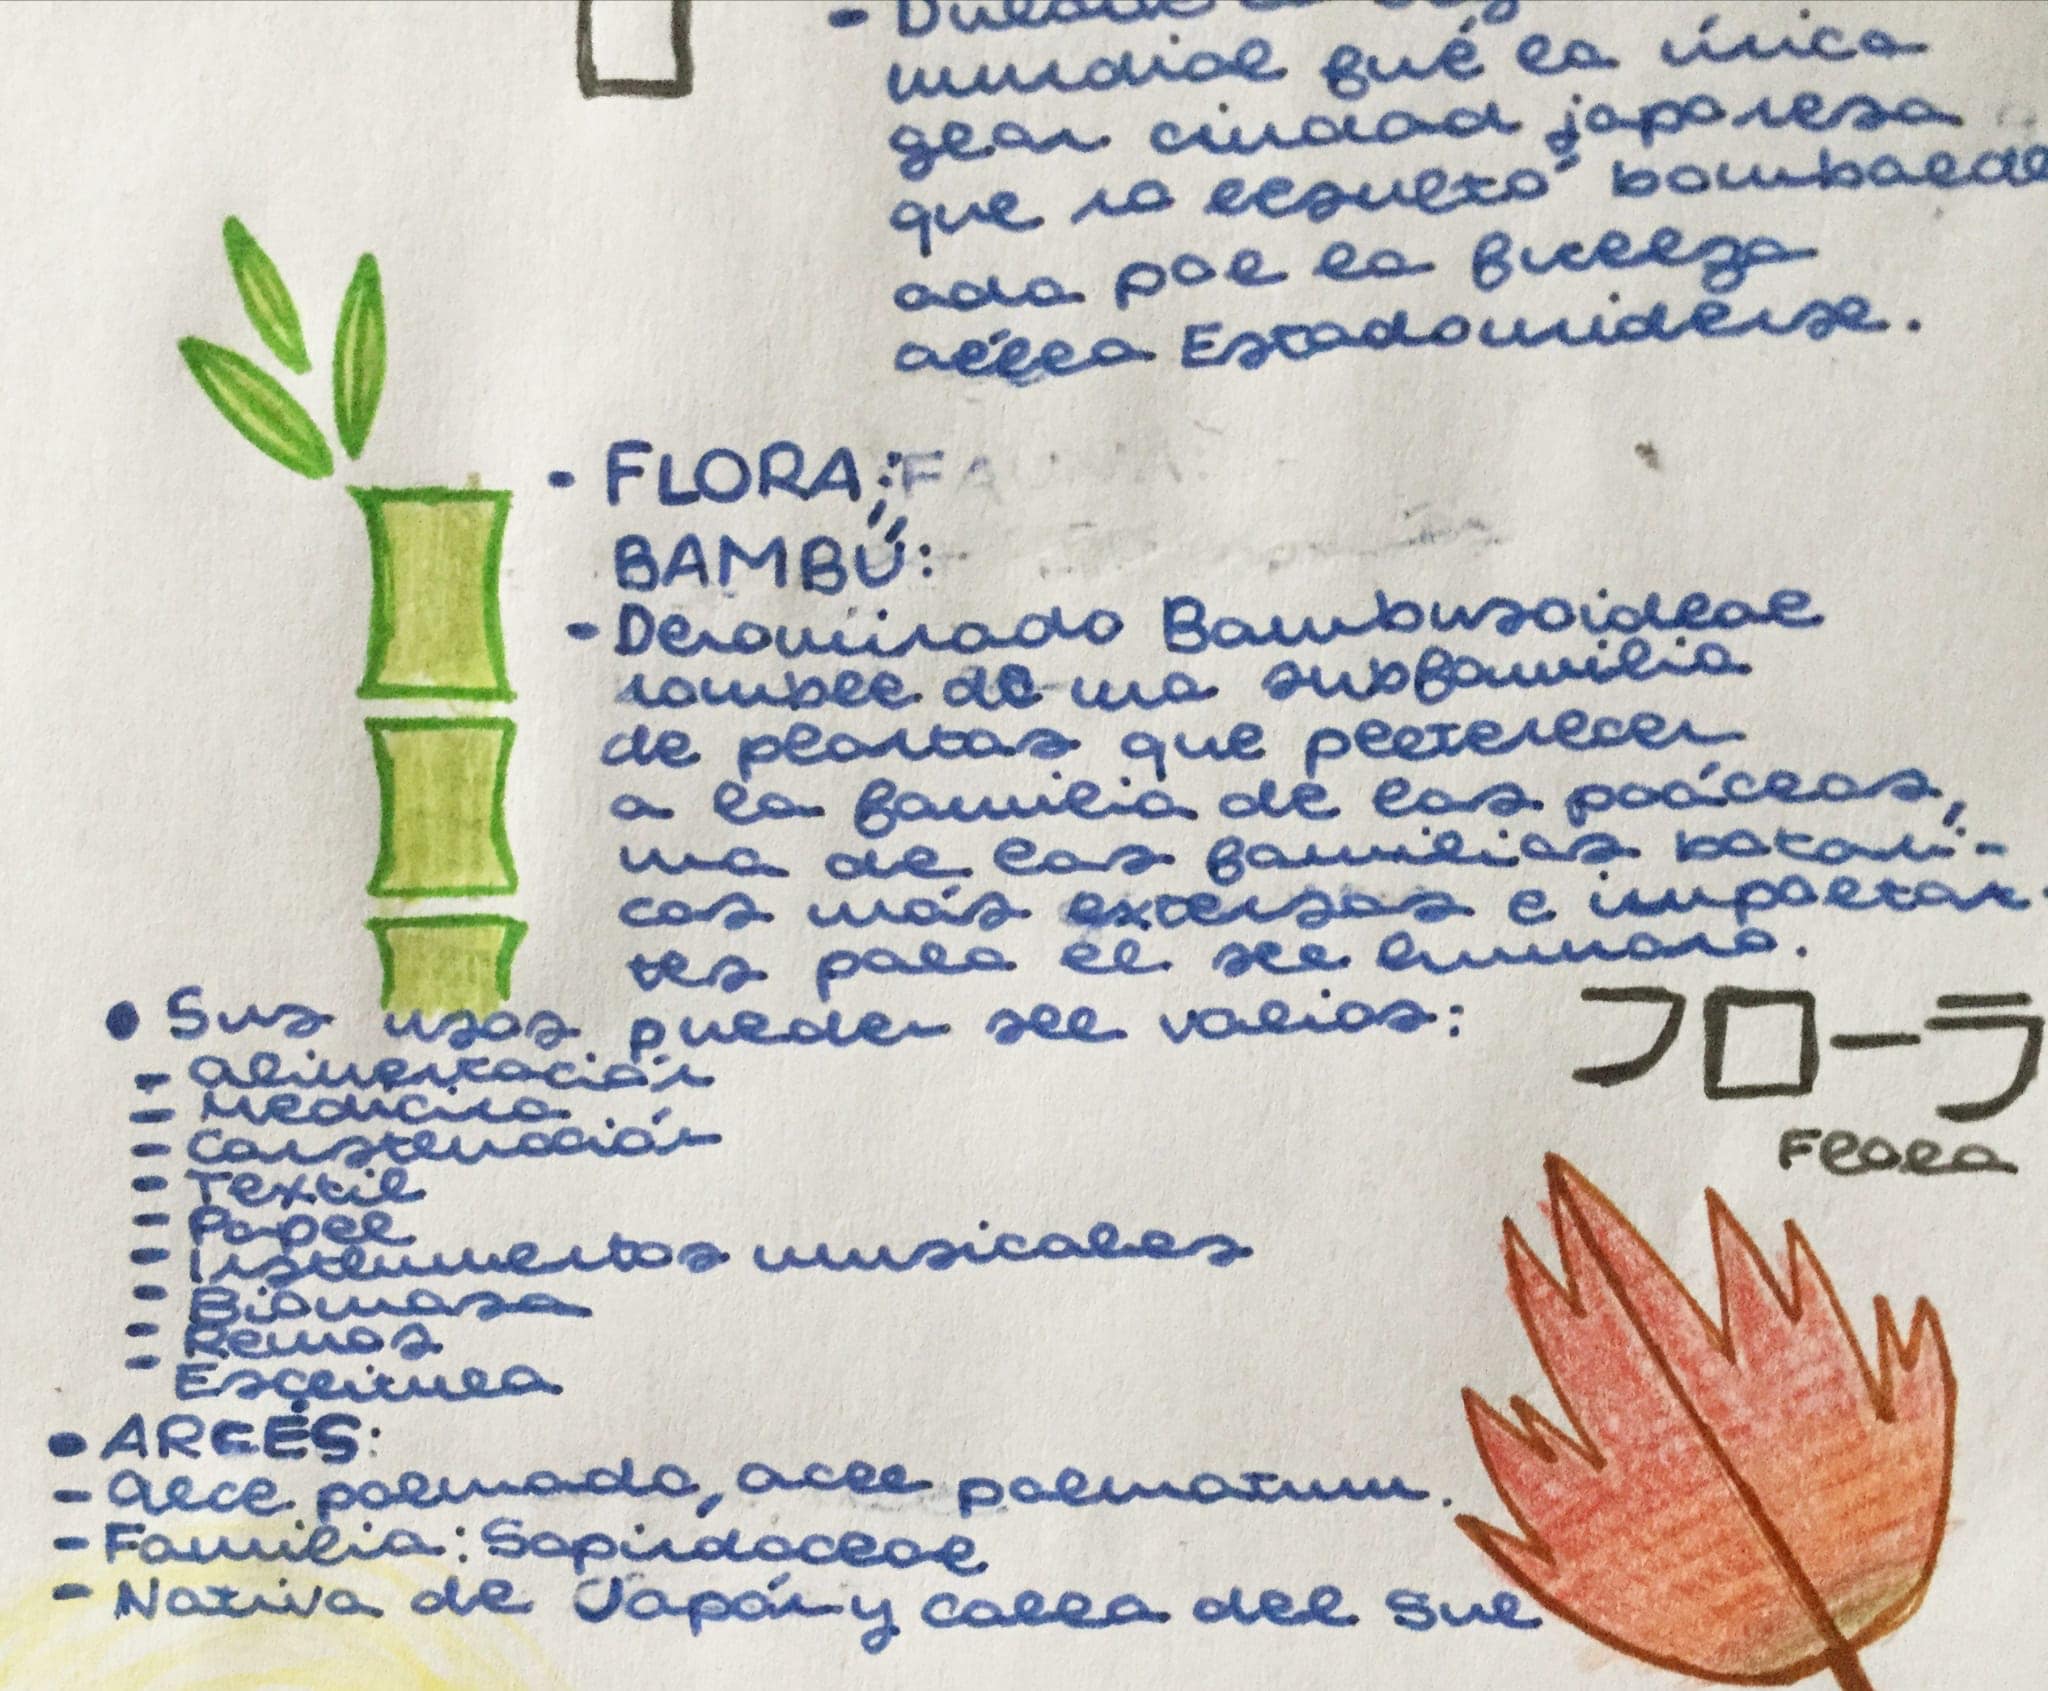 mundial fué la única
gran ciudad japonesa
que no resultó bombarde
ada por la fuerza
aérea Estadounidense.
- FLORA:
BAMBÚ:
- Denominado Bambusoideae
nombre de una subfamilia
de plantas que pertenecen
a la familia de las poáceas,
una de las familias botani-
cas más extensas e importan-
tes para el ser humano.
• Sus usos pueden ser varios:
- Alimentación
- Medicina
- Construcción
- Textil
- Papel
- Instrumentos musicales
- Biomasa
- Remos
- Escritura
フローラ
Flora
• ARCÉS:
- Arce palmado, acer palmatum.
- Familia: Sapindaceae
- Nativa de Japón y Corea del Sur